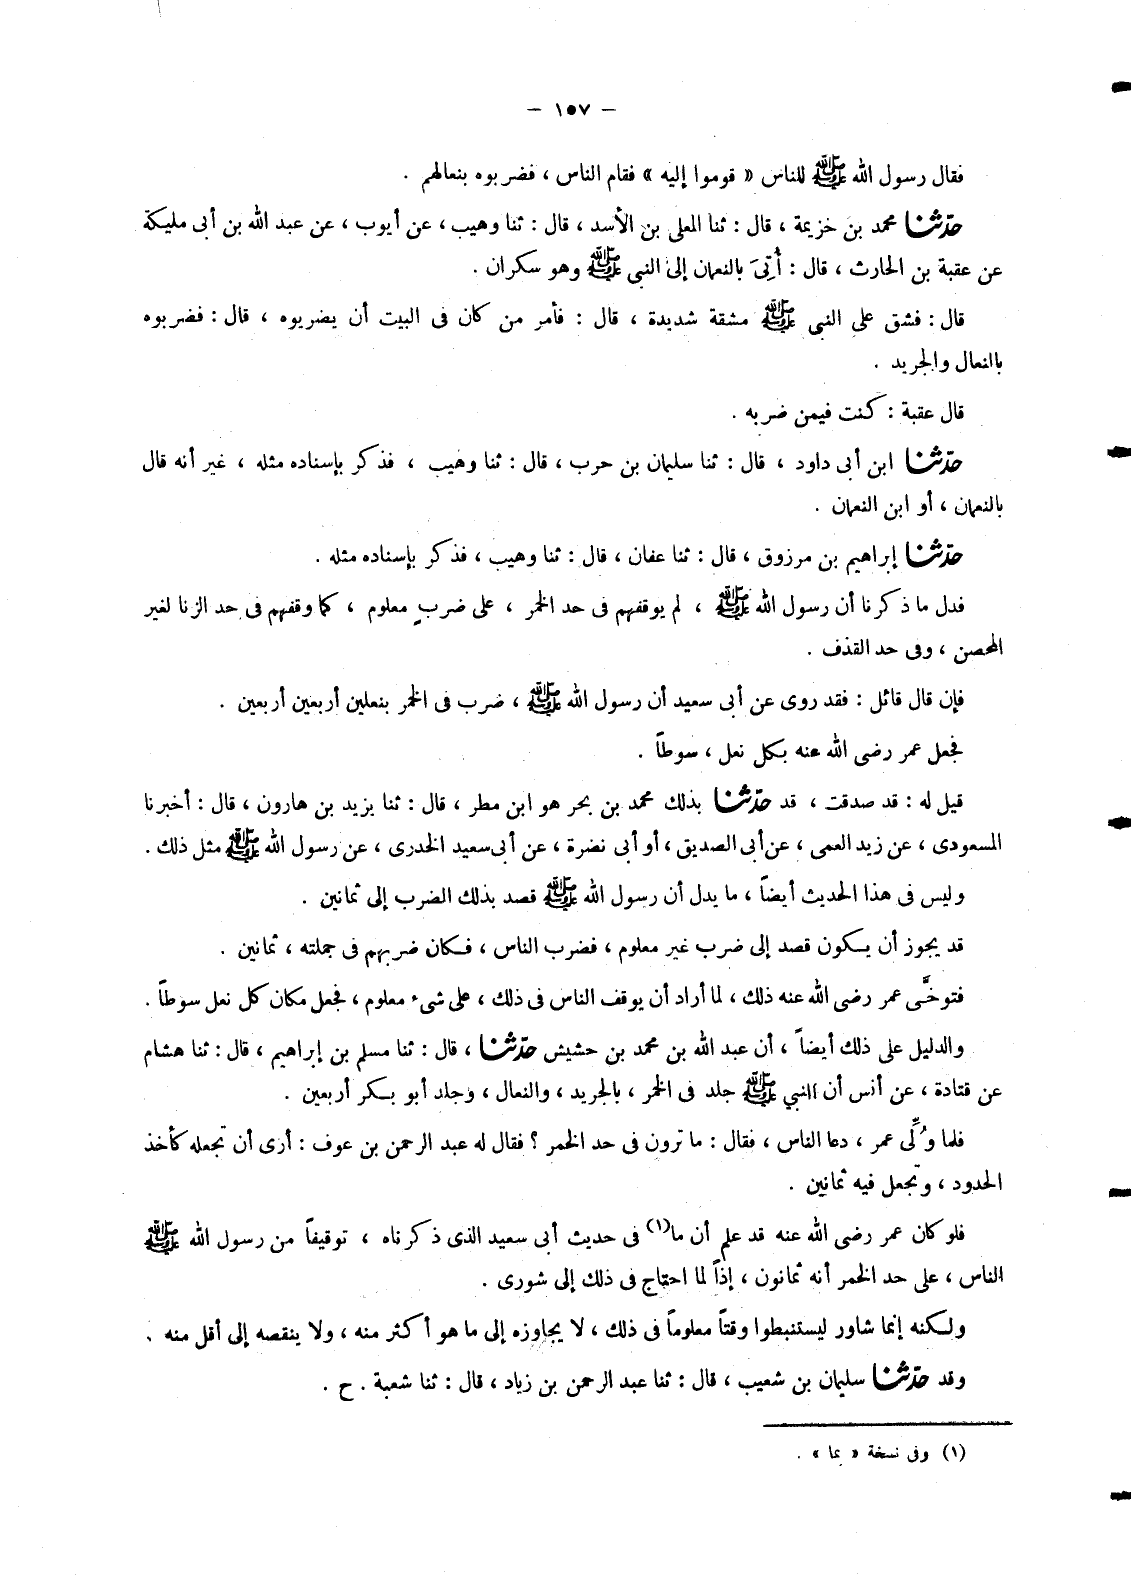 — ١٥٧ —
فقال رسول الله ﷺ للناس « قوموا إليه » فقام الناس ، فضربوه بنعالهم .
حدّثنا محمد بن خزيمة ، قال : ثنا المعلى بن الأسد ، قال : ثنا وهيب ، عن أيوب ، عن عبد الله بن أبى مليكة
عن عقبة بن الحارث ، قال : أُتِىَ بالنعمان إلى النبي ﷺ وهو سكران .
قال : فشق على النبي ﷺ مشقة شديدة ، قال : فأمر من كان فى البيت أن يضربوه ، قال : فضربوه
بالنعال والجريد .
قال عقبة : كنت فيمن ضربه .
حدّثنا ابن أبى داود ، قال : ثنا سليمان بن حرب ، قال : ثنا وهيب ، فذكر بإسناده مثله ، غير أنه قال
بالنعمان ، أو ابن النعمان .
حدّثنا إبراهيم بن مرزوق ، قال : ثنا عفان ، قال : ثنا وهيب ، فذكر بإسناده مثله .
فدل ما ذكرنا أن رسول الله ﷺ ، لم يوقفهم فى حد الخمر ، على ضربٍ معلوم ، كما وقفهم فى حد الزنا لغير
المحصن ، وفى حد القذف .
فإن قال قائل : فقد روى عن أبى سعيد أن رسول الله ﷺ ، ضرب فى الخمر بنعلين أربعين أربعين .
فجعل عمر رضى الله عنه بكل نعل ، سوطاً .
قيل له : قد صدقت ، قد حدّثنا بذلك محمد بن بحر هو ابن مطر ، قال : ثنا يزيد بن هارون ، قال : أخبرنا
المسعودى ، عن زيد العمى ، عن أبى الصديق ، أو أبى نضرة ، عن أبى سعيد الخدرى ، عن رسول الله ﷺ مثل ذلك .
وليس فى هذا الحديث أيضاً ، ما يدل أن رسول الله ﷺ قصد بذلك الضرب إلى ثمانين .
قد يجوز أن يكون قصد إلى ضرب غير معلوم ، فضرب الناس ، فكان ضربهم فى جملته ، ثمانين .
فتوخَّى عمر رضى الله عنه ذلك ، لما أراد أن يوقف الناس فى ذلك ، على شىء معلوم ، فجعل مكان كل نعل سوطاً .
والدليل على ذلك أيضاً ، أن عبد الله بن محمد بن حشيش حدّثنا ، قال : ثنا مسلم بن إبراهيم ، قال : ثنا هشام
عن قتادة ، عن أنس أن النبي ﷺ جلد فى الخمر ، بالجريد ، والنعال ، وجلد أبو بكر أربعين .
فلما وُلِّى عمر ، دعا الناس ، فقال : ما ترون فى حد الخمر ؟ فقال له عبد الرحمن بن عوف : أرى أن تجعله كأخذ
الحدود ، وتجعل فيه ثمانين .
فلو كان عمر رضى الله عنه قد علم أن ما(١) فى حديث أبى سعيد الذى ذكرناه ، توقيفاً من رسول الله ﷺ
الناس ، على حد الخمر أنه ثمانون ، إذاً لما احتاج فى ذلك إلى شورى .
ولكنه إنما شاور ليستنبطوا وقتاً معلوماً فى ذلك ، لا يجاوزه إلى ما هو أكثر منه ، ولا ينقصه إلى أقل منه .
وقد حدّثنا سليمان بن شعيب ، قال : ثنا عبد الرحمن بن زياد ، قال : ثنا شعبة . ح .
(١) وفى نسخة « بما » .